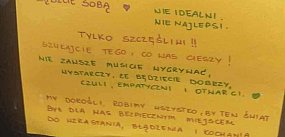 BĄDŹCIE SOBĄ ♥
NIE IDEALNI.
NIE NAJLEPSI.
TYLKO SZCZĘŚLIWI!!
SZUKAJCIE TEGO, CO WAS CIESZY!
NIE ZAWSZE MUSICIE WYGRYWAĆ,
WYSTARCZY, ŻE BĘDZIECIE DOBRZY,
CZULI, EMPATYCZNI I OTWARCI. ♥
MY DOROŚLI, ROBIMY WSZYSTKO, BY TEN ŚWIAT
BYŁ DLA WAS BEZPIECZNYM MIEJSCEM
DO WZRASTANIA, BŁĄDZENIA I KOCHANIA